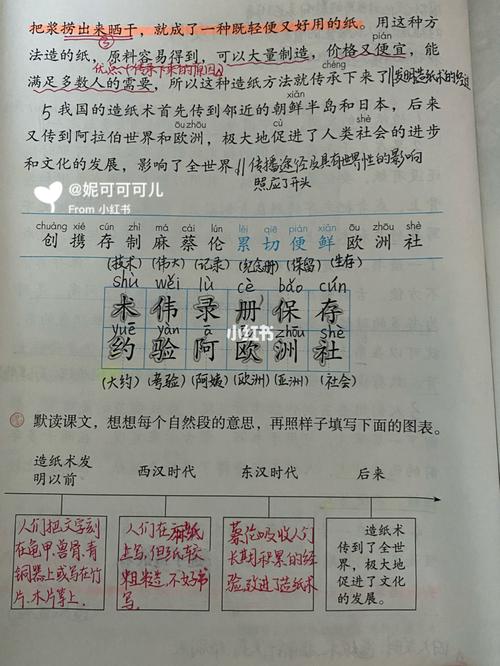 把浆捞出来晒干，就成了一种既轻便又好用的纸。用这种方
⑤
pián
法造的纸，原料容易得到，可以大量制造，价格又便宜，能
优点(传承下来的原因)
满足多数人的需要，所以这种造纸方法就传承下来了 发明造纸术的经过
cháo xiǎn bàn dǎo
5 我国的造纸术首先传到邻近的朝鲜半岛和日本，后来
ōu zhōu shè
又传到阿拉伯世界和欧洲，极大地促进了人类社会的进步
和文化的发展，影响了全世界 传播途径及具有世界性的影响
照应了开头
@妮可可可儿
From 小红书
chuàng xié cún zhì má cài lún lěi qiē pián xiān ōu zhōu shè
创 携 存 制 麻 蔡 伦 累 切 便 鲜 欧 洲 社
(技术) (伟大) (记录) (纪念册) (保留) (生存)
shù wěi lù cè bǎo cún
术 伟 录 册 保 存
yuē yàn ā zhōu shè
约 验 阿 欧 洲 社
小红书
(大约) (考验) (阿姨) (欧洲) (亚洲) (社会)
默读课文，想想每个自然段的意思，再照样子填写下面的图表。
造纸术发
明以前
西汉时代
东汉时代
后来
人们把文字刻
在龟甲、兽骨、青
铜器上或写在竹
片、木片掌上.
人们在麻纸
上写,但纸较
粗糙,不好书
写.
蔡伦吸收人们
长期积累的经
验,改进了造纸术
造纸术
传到了全世
界，极大地
促进了文化
的发展。